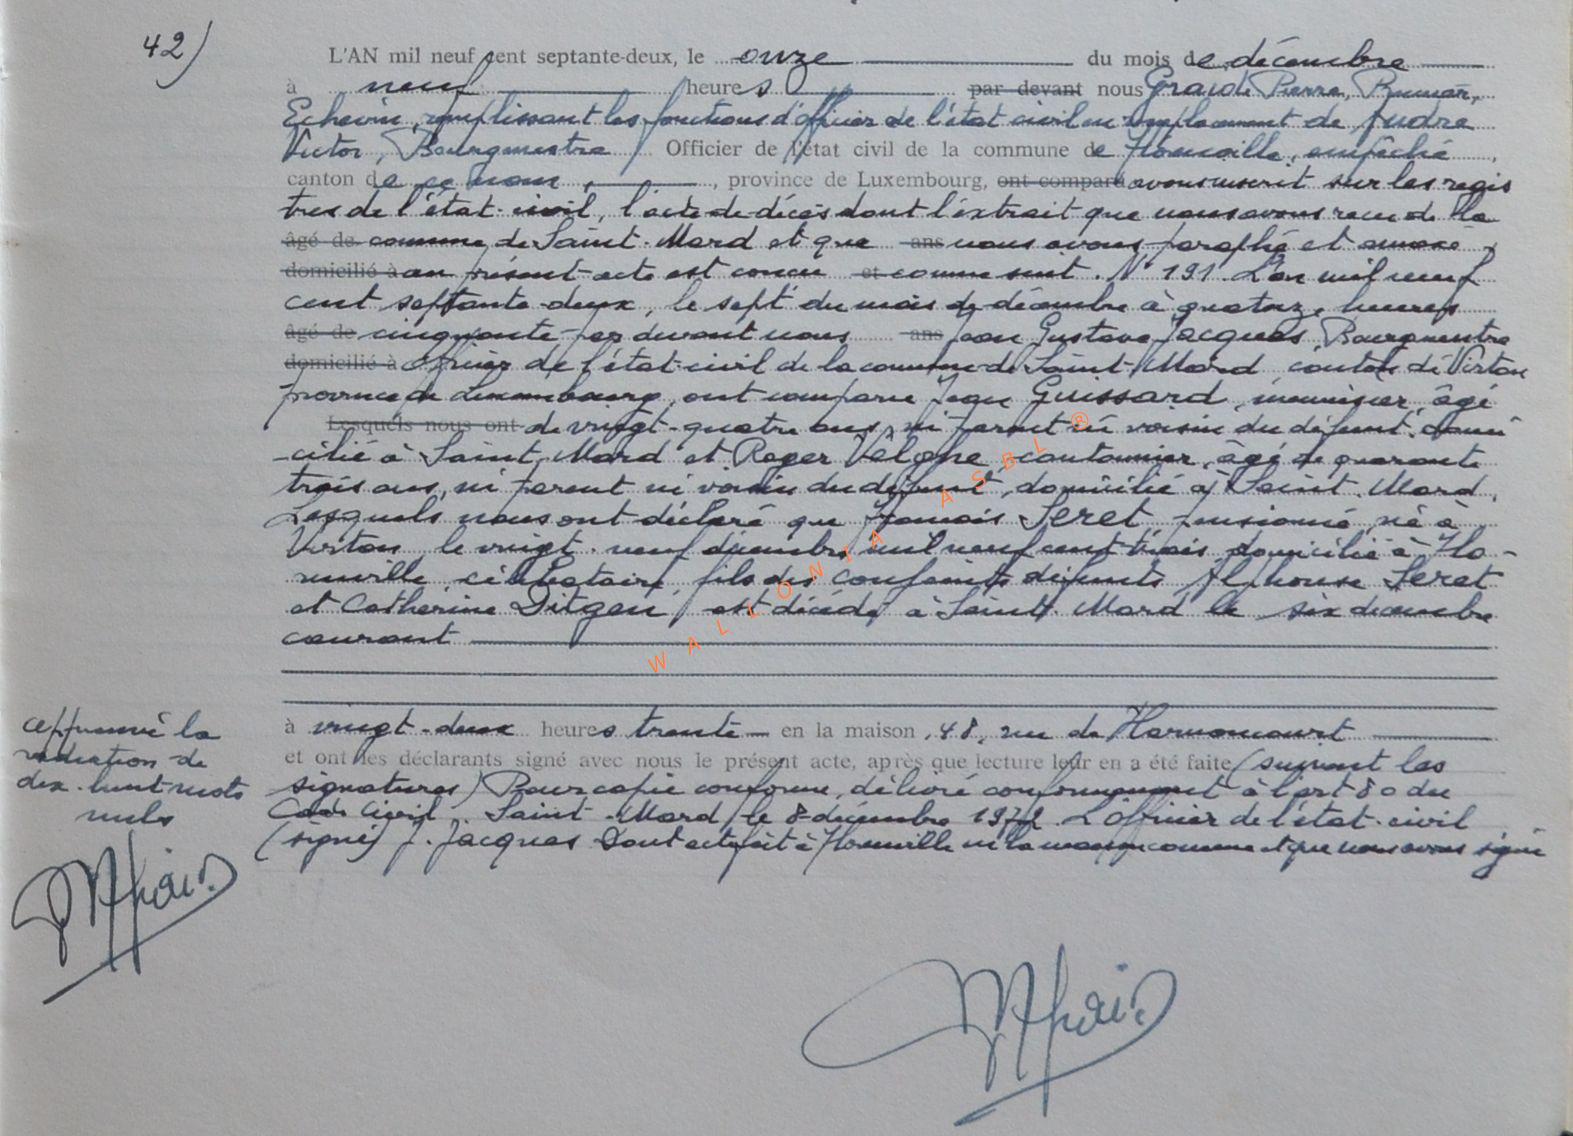 42)
L'AN mil neuf cent septante-deux, le onze du mois de décembre
à neuf heures par devant nous Pierre, Premier,
Echevin, remplissant les fonctions d'officier de l'état civil en remplacement de
Victor, Bourgmestre Officier de l'état civil de la commune de Houville, empêché,
canton de ce nom, province de Luxembourg, ont comparu avons inscrit sur les regis
tres de l'état-civil, l'acte de décès dont l'extrait que nous avons recu de la
âgé de commune de Saint-Mard et que ans nous avons paraphé et annexé,
domicilié à au présent acte est conçu et comme suit. N° 191. L'an mil neuf
cent septante-deux, le sept du mois de décembre à quatorze heures
âgé de cinquante par devant nous ans Jean Gustave Jacques, Bourgmestre
domicilié à officier de l'état-civil de la commune de Saint-Mard, canton de Virton
province de Luxembourg, ont comparu Guissard, menuisier, âgé
Lesquels nous ont de vingt-quatre ans, ni parent ni voisin du défunt, domi
-cilié à Saint-Mard et Roger cantonnier, âgé de quarante
trois ans, ni parent ni voisin du défunt, domicilié à Saint-Mard.
Lesquels nous ont déclaré que François Seret, pensionné, né à
Virton, le vingt-neuf décembre mil neuf cent trois domicilié à Ho-
uville célibataire, fils des conjoints défunts Alphonse Seret
et Catherine Ditgen, est décédé à Saint-Mard le six décembre
courant
à vingt-deux heures trente en la maison, 48, rue de Harnoncourt
et ont les déclarants signé avec nous le présent acte, après que lecture leur en a été faite (suivent les
signatures) Pour copie conforme, délivré conformément à l'art 80 du
Code Civil. Saint-Mard, le 8 décembre 1972 L'officier de l'état-civil
(signé) J. Jacques Dont acte fait à en la maison commune et que nous avons signé
approuvé la
radiation de
dix-huit mots
nuls
WALLONIA ASBL ®